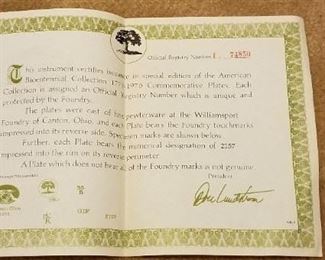 Official Registry Number 74850
This instrument certifies issuance in special edition of the American
Bicentennial Collection 1776-1976 Commemorative Plates. Each
Collection is assigned an Official Registry Number which is unique and
protected by the Foundry.
The plates were cast of fine pewterware at the Williamsport
Foundry of Canton, Ohio, and each Plate bears the Foundry touchmarks
impressed into its reverse side. Specimen marks are shown below.
Further, each Plate bears the numerical designation of 2157
impressed into the rim on its reverse perimeter.
A Plate which does not bear all of the Foundry marks is not genuine
President